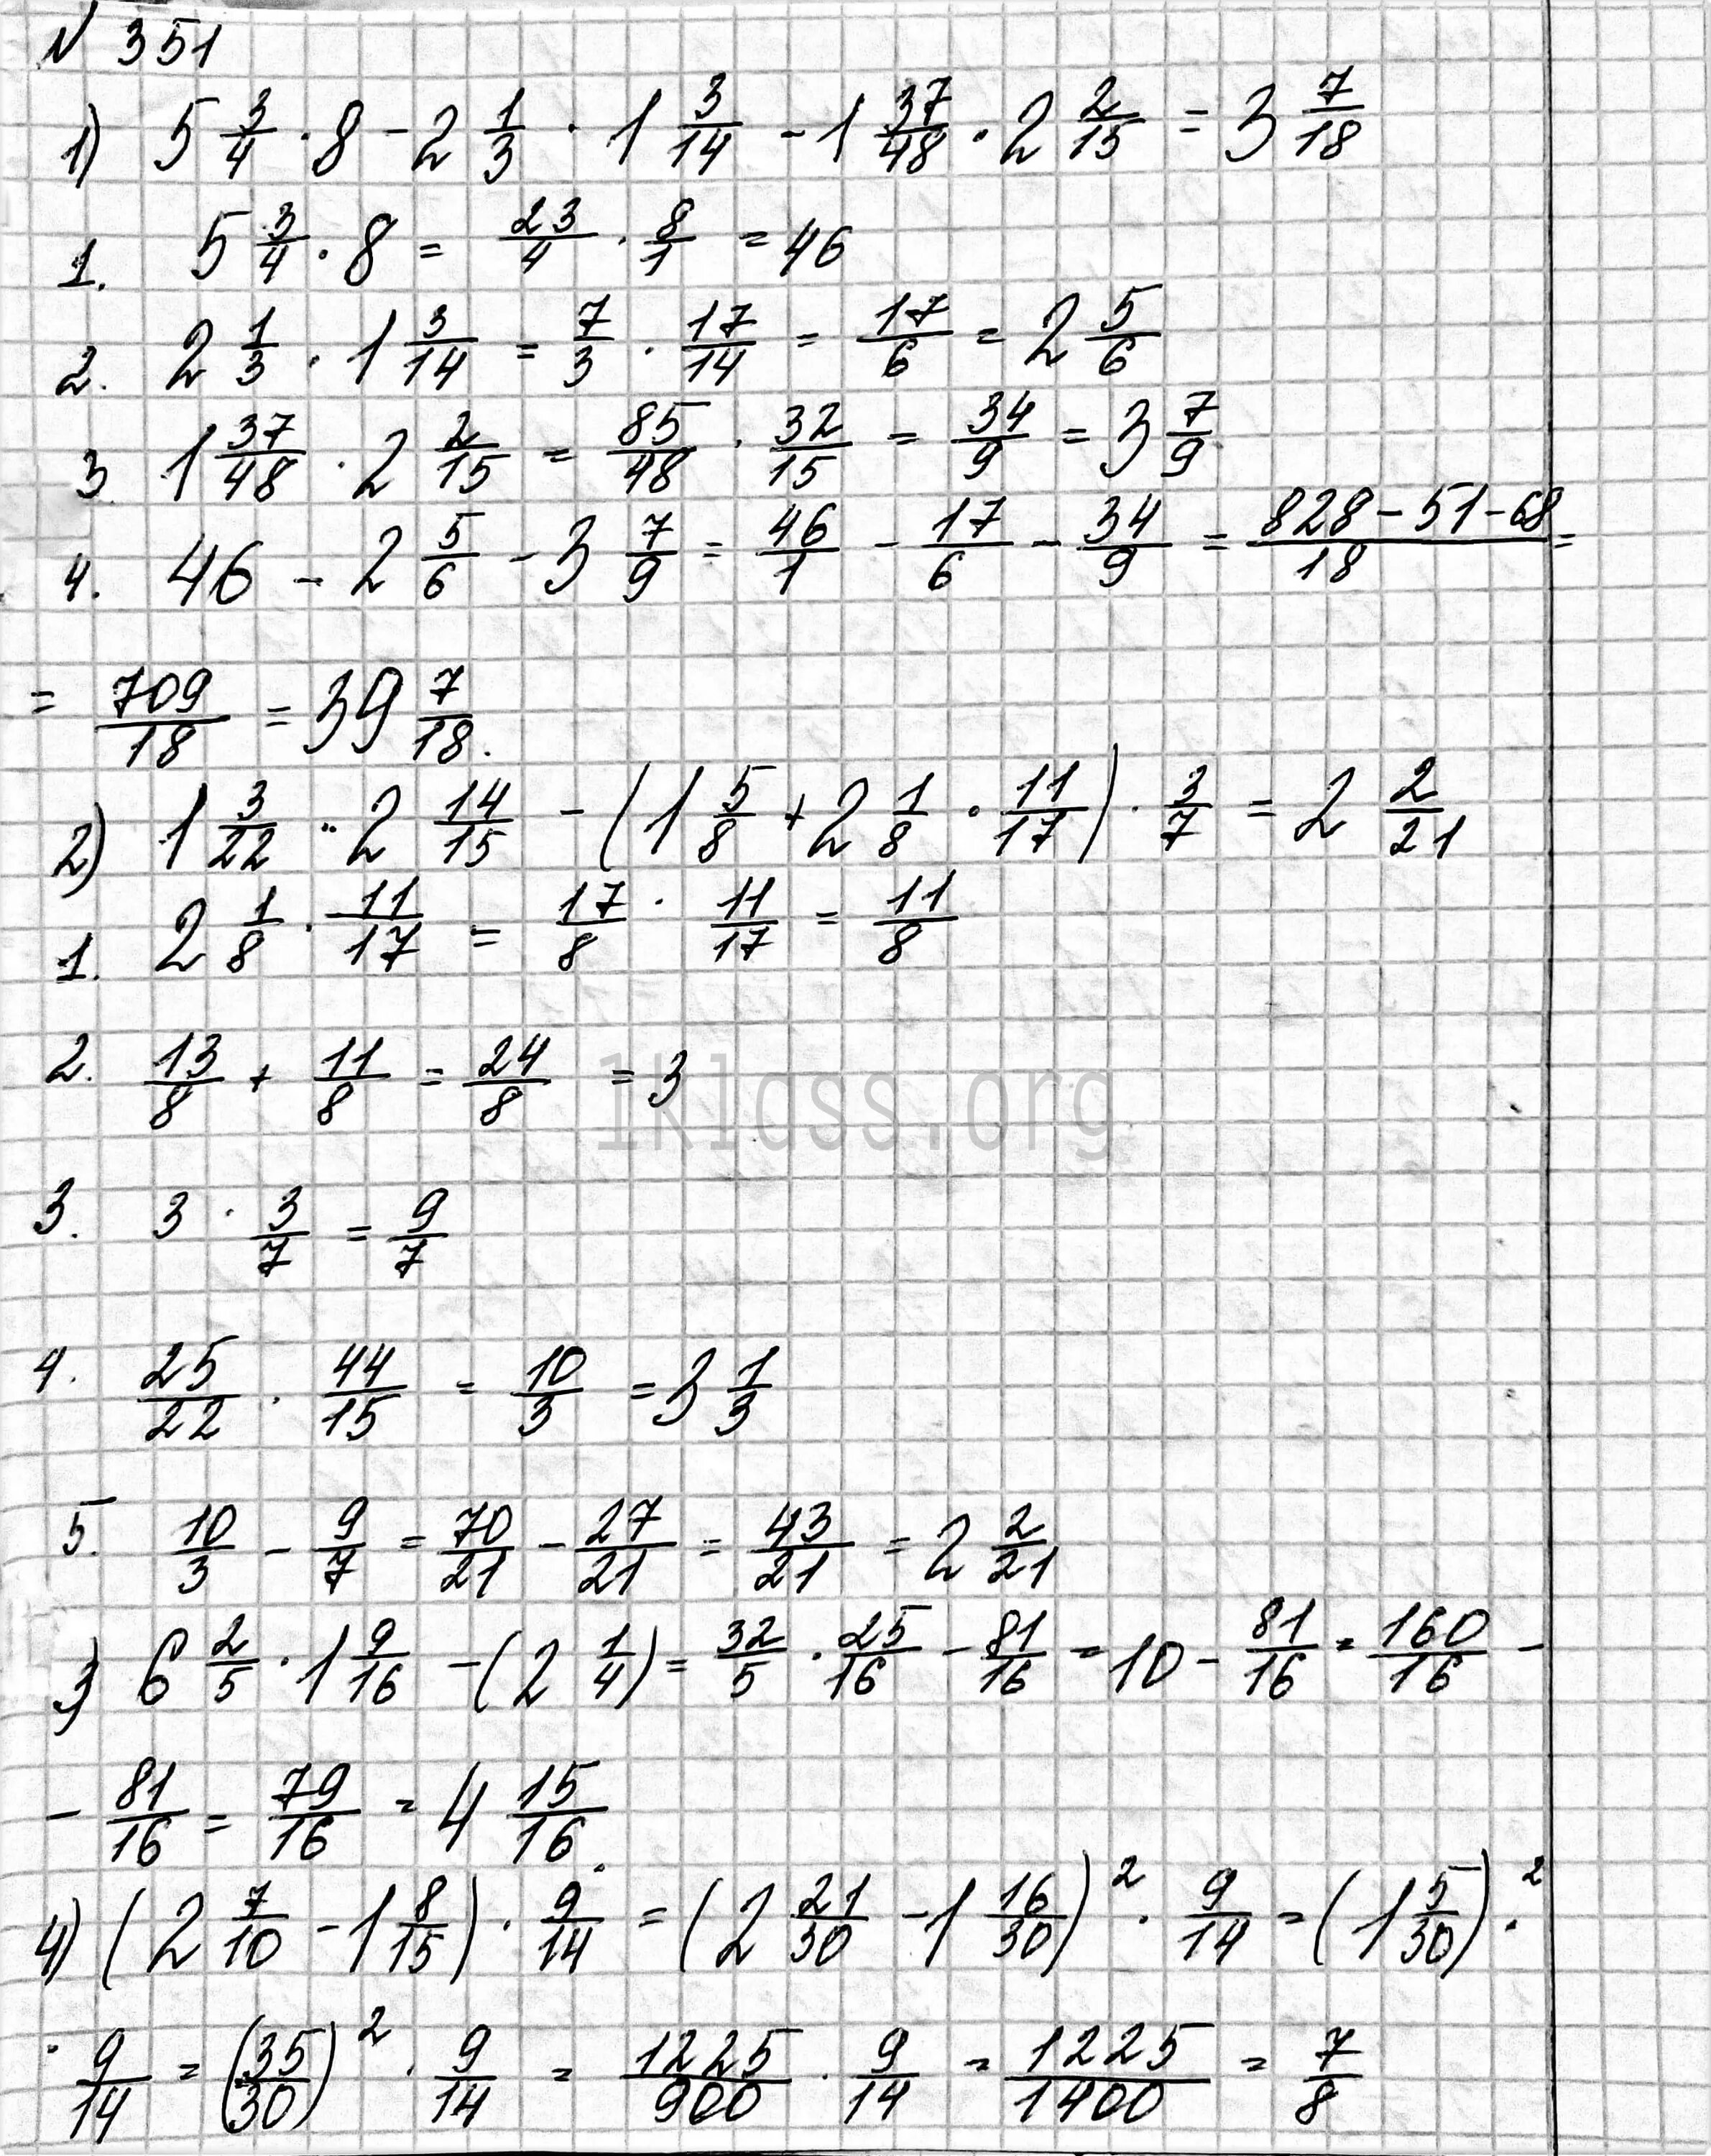 N 351
1) 5 3/4 · 8 - 2 1/3 · 1 3/14 - 1 37/48 · 2 2/15 = 3 7/18
1. 5 3/4 · 8 = 23/4 · 8/1 = 46
2. 2 1/3 · 1 3/14 = 7/3 · 17/14 = 17/6 = 2 5/6
3. 1 37/48 · 2 2/15 = 85/48 · 32/15 = 34/9 = 3 7/9
4. 46 - 2 5/6 - 3 7/9 = 46/1 - 17/6 - 34/9 = (828 - 51 - 68)/18 =
= 709/18 = 39 7/18.
2) 1 3/22 · 2 14/15 - (1 5/8 + 2 1/8 · 11/17) · 3/7 = 2 2/21
1. 2 1/8 · 11/17 = 17/8 · 11/17 = 11/8
2. 13/8 + 11/8 = 24/8 = 3
1klass.org
3. 3 · 3/7 = 9/7
4. 25/22 · 44/15 = 10/3 = 3 1/3
5. 10/3 - 9/7 = 70/21 - 27/21 = 43/21 = 2 2/21
3) 6 2/5 · 1 9/16 - (2 1/4) = 32/5 · 25/16 - 81/16 = 10 - 81/16 = 160/16 -
- 81/16 = 79/16 = 4 15/16.
4) (2 7/10 - 1 8/15) · 9/14 = (2 21/30 - 1 16/30)² · 9/14 = (1 5/30)² ·
· 9/14 = (35/30)² · 9/14 = 1225/900 · 9/14 = 1225/1400 = 7/8